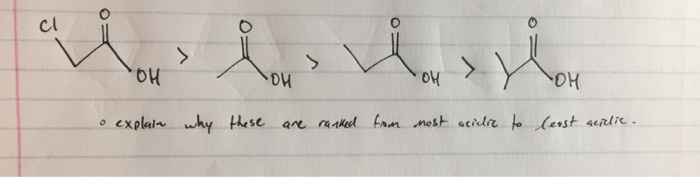 Cl O OH > O OH > O OH > O OH
◦ explain why these are ranked from most acidic to least acidic.